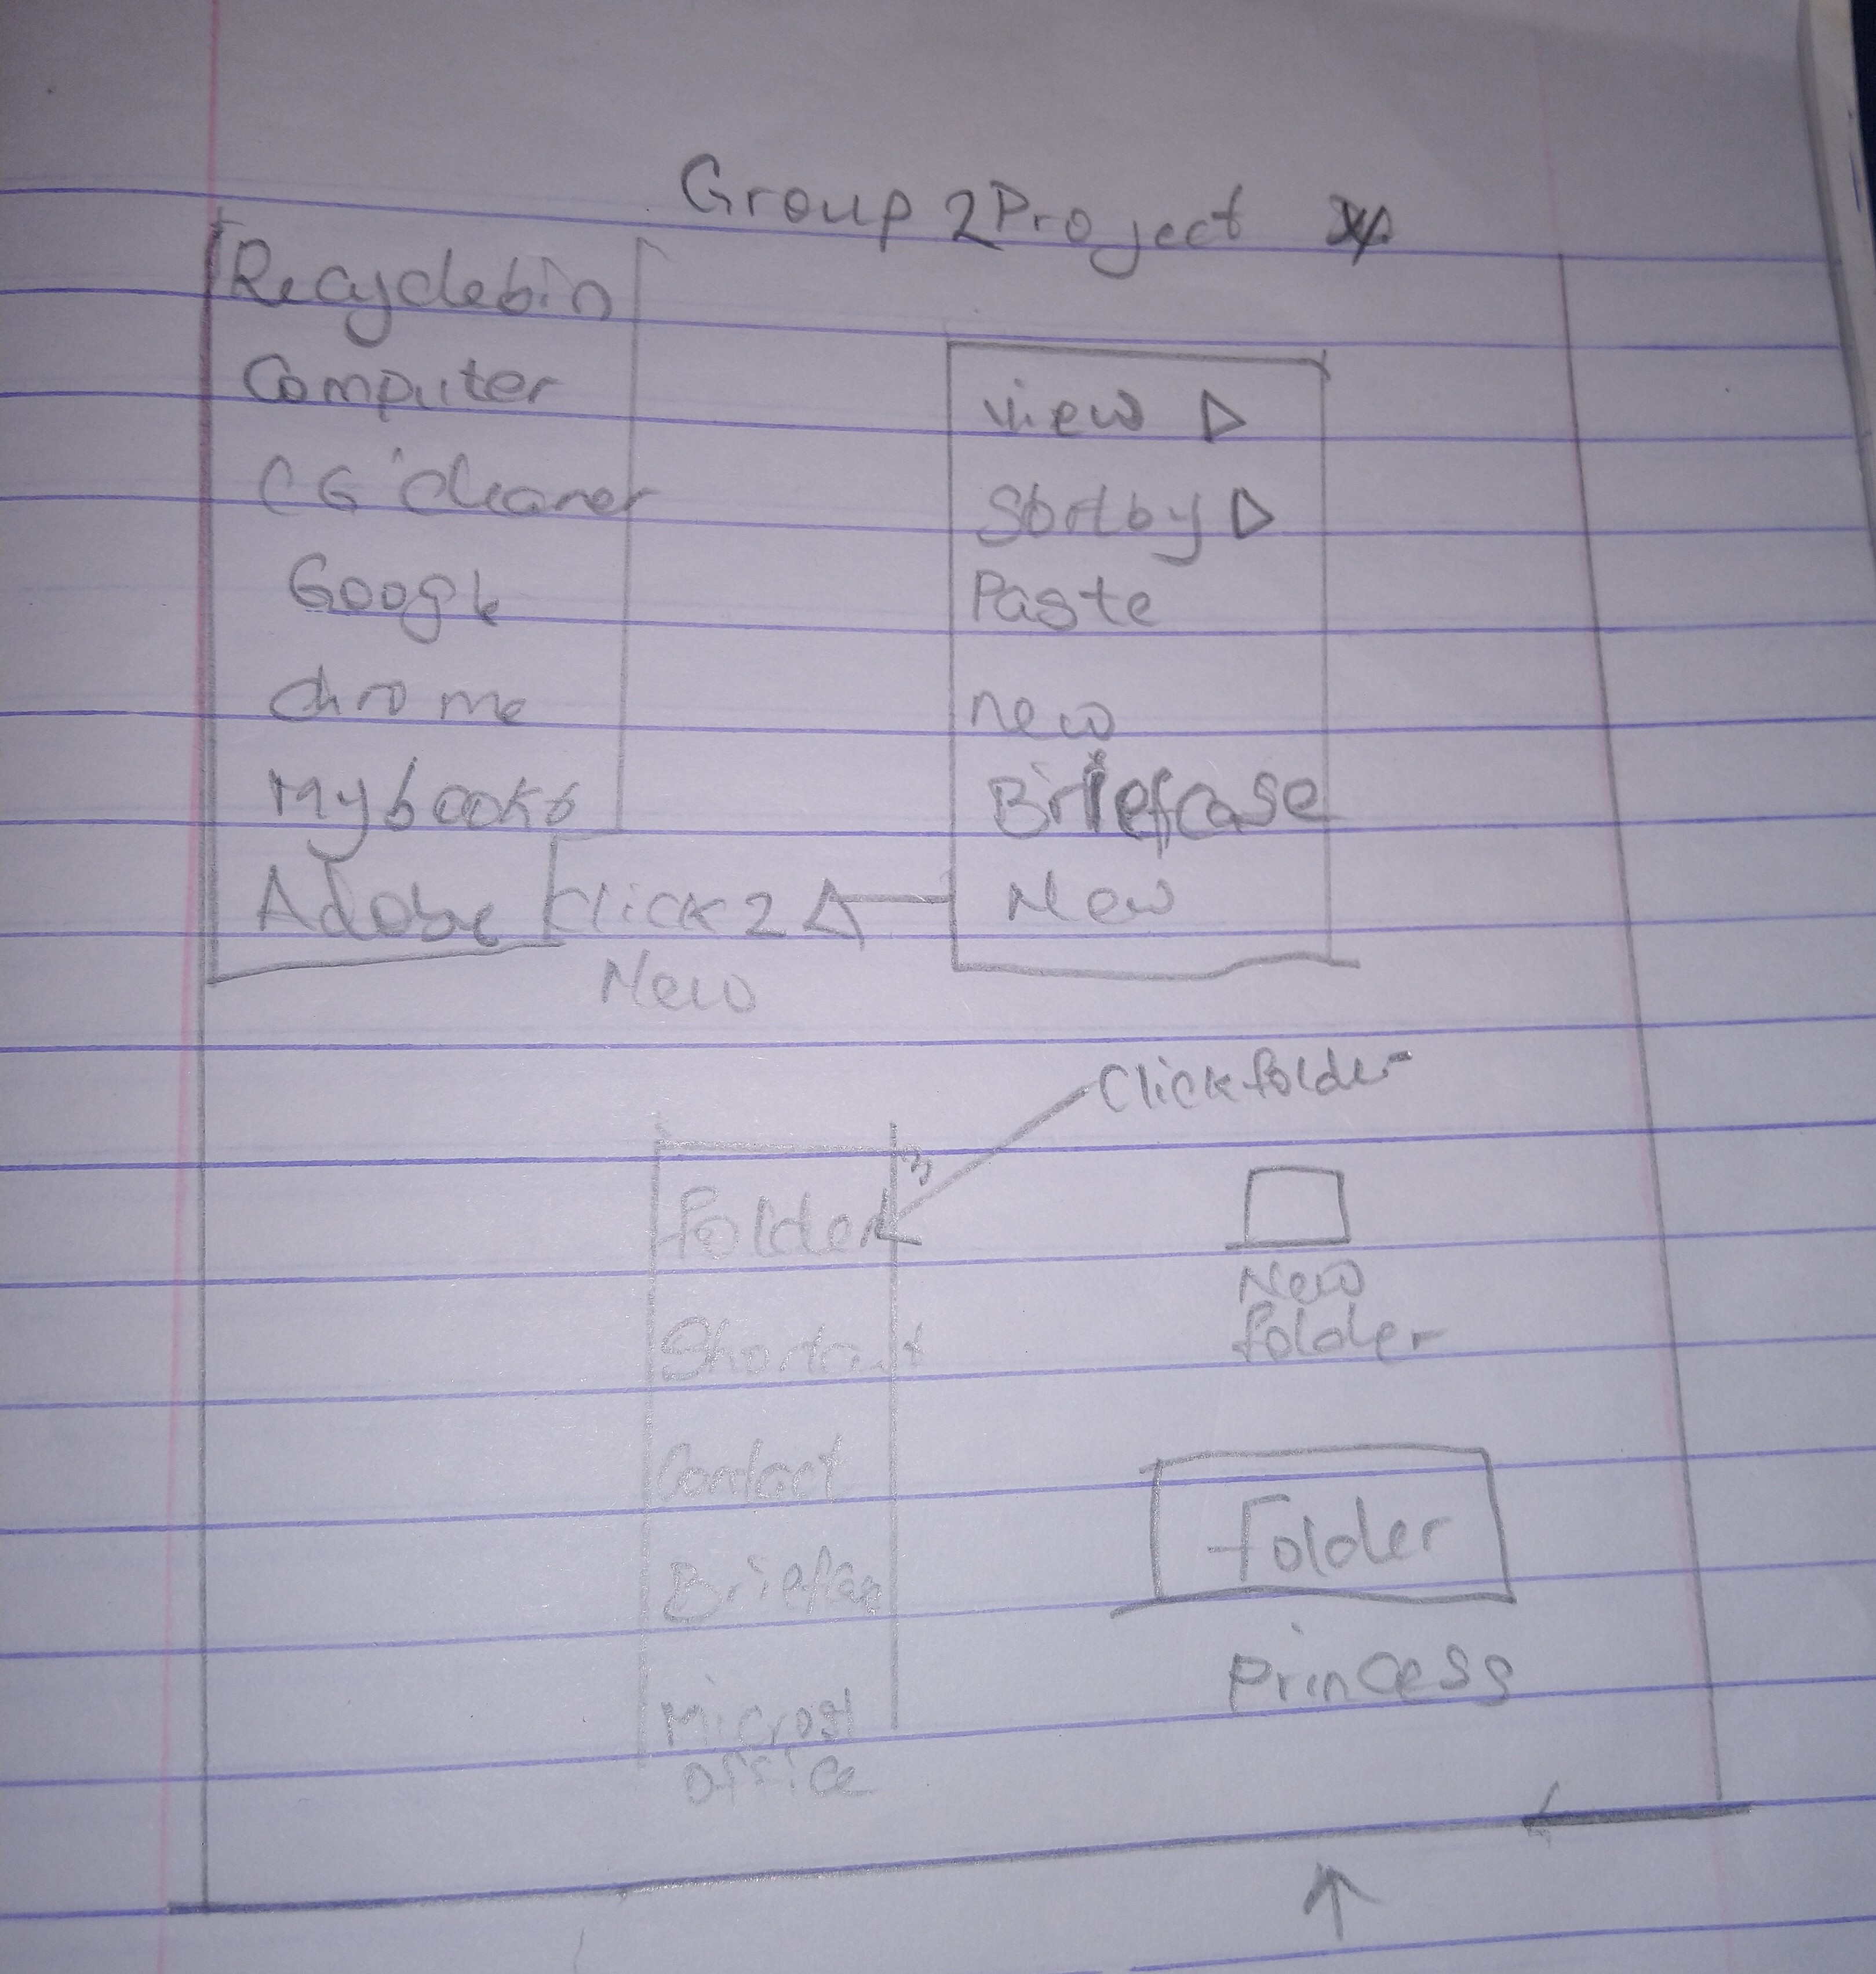 Group 2 Project
Recyclebin
Computer
CG cleaner
Google
chrome
Mybooks
Adobe
view
Sortby
Paste
new
Briefcase
New
click 2
New
Click folder
3
folder
Shortcut
Contact
Briefcas
Microst
office
New
folder
Folder
Princess